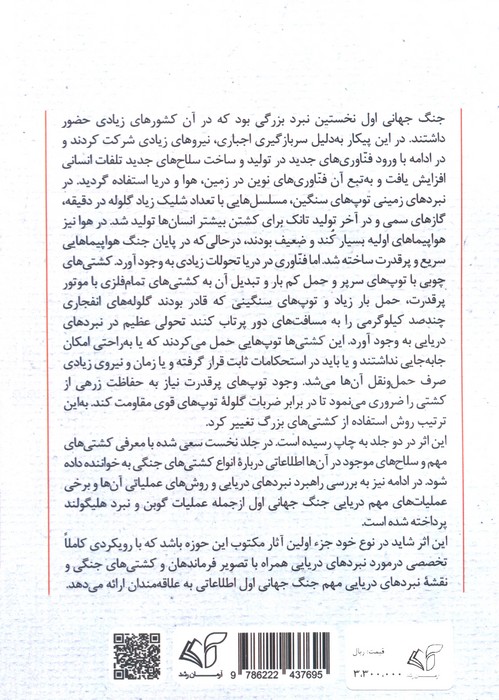 جنگ جهانی اول نخستین نبرد بزرگی بود که در آن کشورهای زیادی حضور
داشتند. در این پیکار به‌دلیل سربازگیری اجباری، نیروهای زیادی شرکت کردند و
در ادامه با ورود فنّاوری‌های جدید در تولید و ساخت سلاح‌های جدید تلفات انسانی
افزایش یافت و به‌تبع آن فنّاوری‌های نوین در زمین، هوا و دریا استفاده گردید. در
نبردهای زمینی توپ‌های سنگین، مسلسل‌هایی با تعداد شلیک زیاد گلوله در دقیقه،
گازهای سمی و در آخر تولید تانک برای کشتن بیشتر انسان‌ها تولید شد. در هوا نیز
هواپیماهای اولیه بسیار کُند و ضعیف بودند، درحالی‌که در پایان جنگ هواپیماهایی
سریع و پرقدرت ساخته شد. اما فنّاوری در دریا تحولات زیادی به وجود آورد. کشتی‌های
چوبی با توپ‌های سرپر و حمل کم بار و تبدیل آن به کشتی‌های تمام‌فلزی با موتور
پرقدرت، حمل بار زیاد و توپ‌های سنگینی که قادر بودند گلوله‌های انفجاری
چندصد کیلوگرمی را به مسافت‌های دور پرتاب کنند تحولی عظیم در نبردهای
دریایی به وجود آورد. این کشتی‌ها توپ‌هایی حمل می‌کردند که یا به‌راحتی امکان
جابه‌جایی نداشتند و یا باید در استحکامات ثابت قرار گرفته و یا زمان و نیروی زیادی
صرف حمل‌ونقل آن‌ها می‌شد. وجود توپ‌های پرقدرت نیاز به حفاظت زرهی از
کشتی را ضروری می‌نمود تا در برابر ضربات گلولهٔ توپ‌های قوی مقاومت کند. به‌این
ترتیب روش استفاده از کشتی‌های بزرگ تغییر کرد.
این اثر در دو جلد به چاپ رسیده است. در جلد نخست سعی شده با معرفی کشتی‌های
مهم و سلاح‌های موجود در آن‌ها اطلاعاتی دربارهٔ انواع کشتی‌های جنگی به خواننده داده
شود. در ادامه نیز به بررسی راهبرد نبردهای دریایی و روش‌های عملیاتی آن‌ها و برخی
عملیات‌های مهم دریایی جنگ جهانی اول ازجمله عملیات گوبن و نبرد هلیگولند
پرداخته شده است.
این اثر شاید در نوع خود جزء اولین آثار مکتوب این حوزه باشد که با رویکردی کاملاً
تخصصی درمورد نبردهای دریایی همراه با تصویر فرماندهان و کشتی‌های جنگی و
نقشهٔ نبردهای دریایی مهم جنگ جهانی اول اطلاعاتی به علاقه‌مندان ارائه می‌دهد.
آرمان رشد
9 786222 437695
قیمت: ریال
۳.۳۰۰.۰۰۰